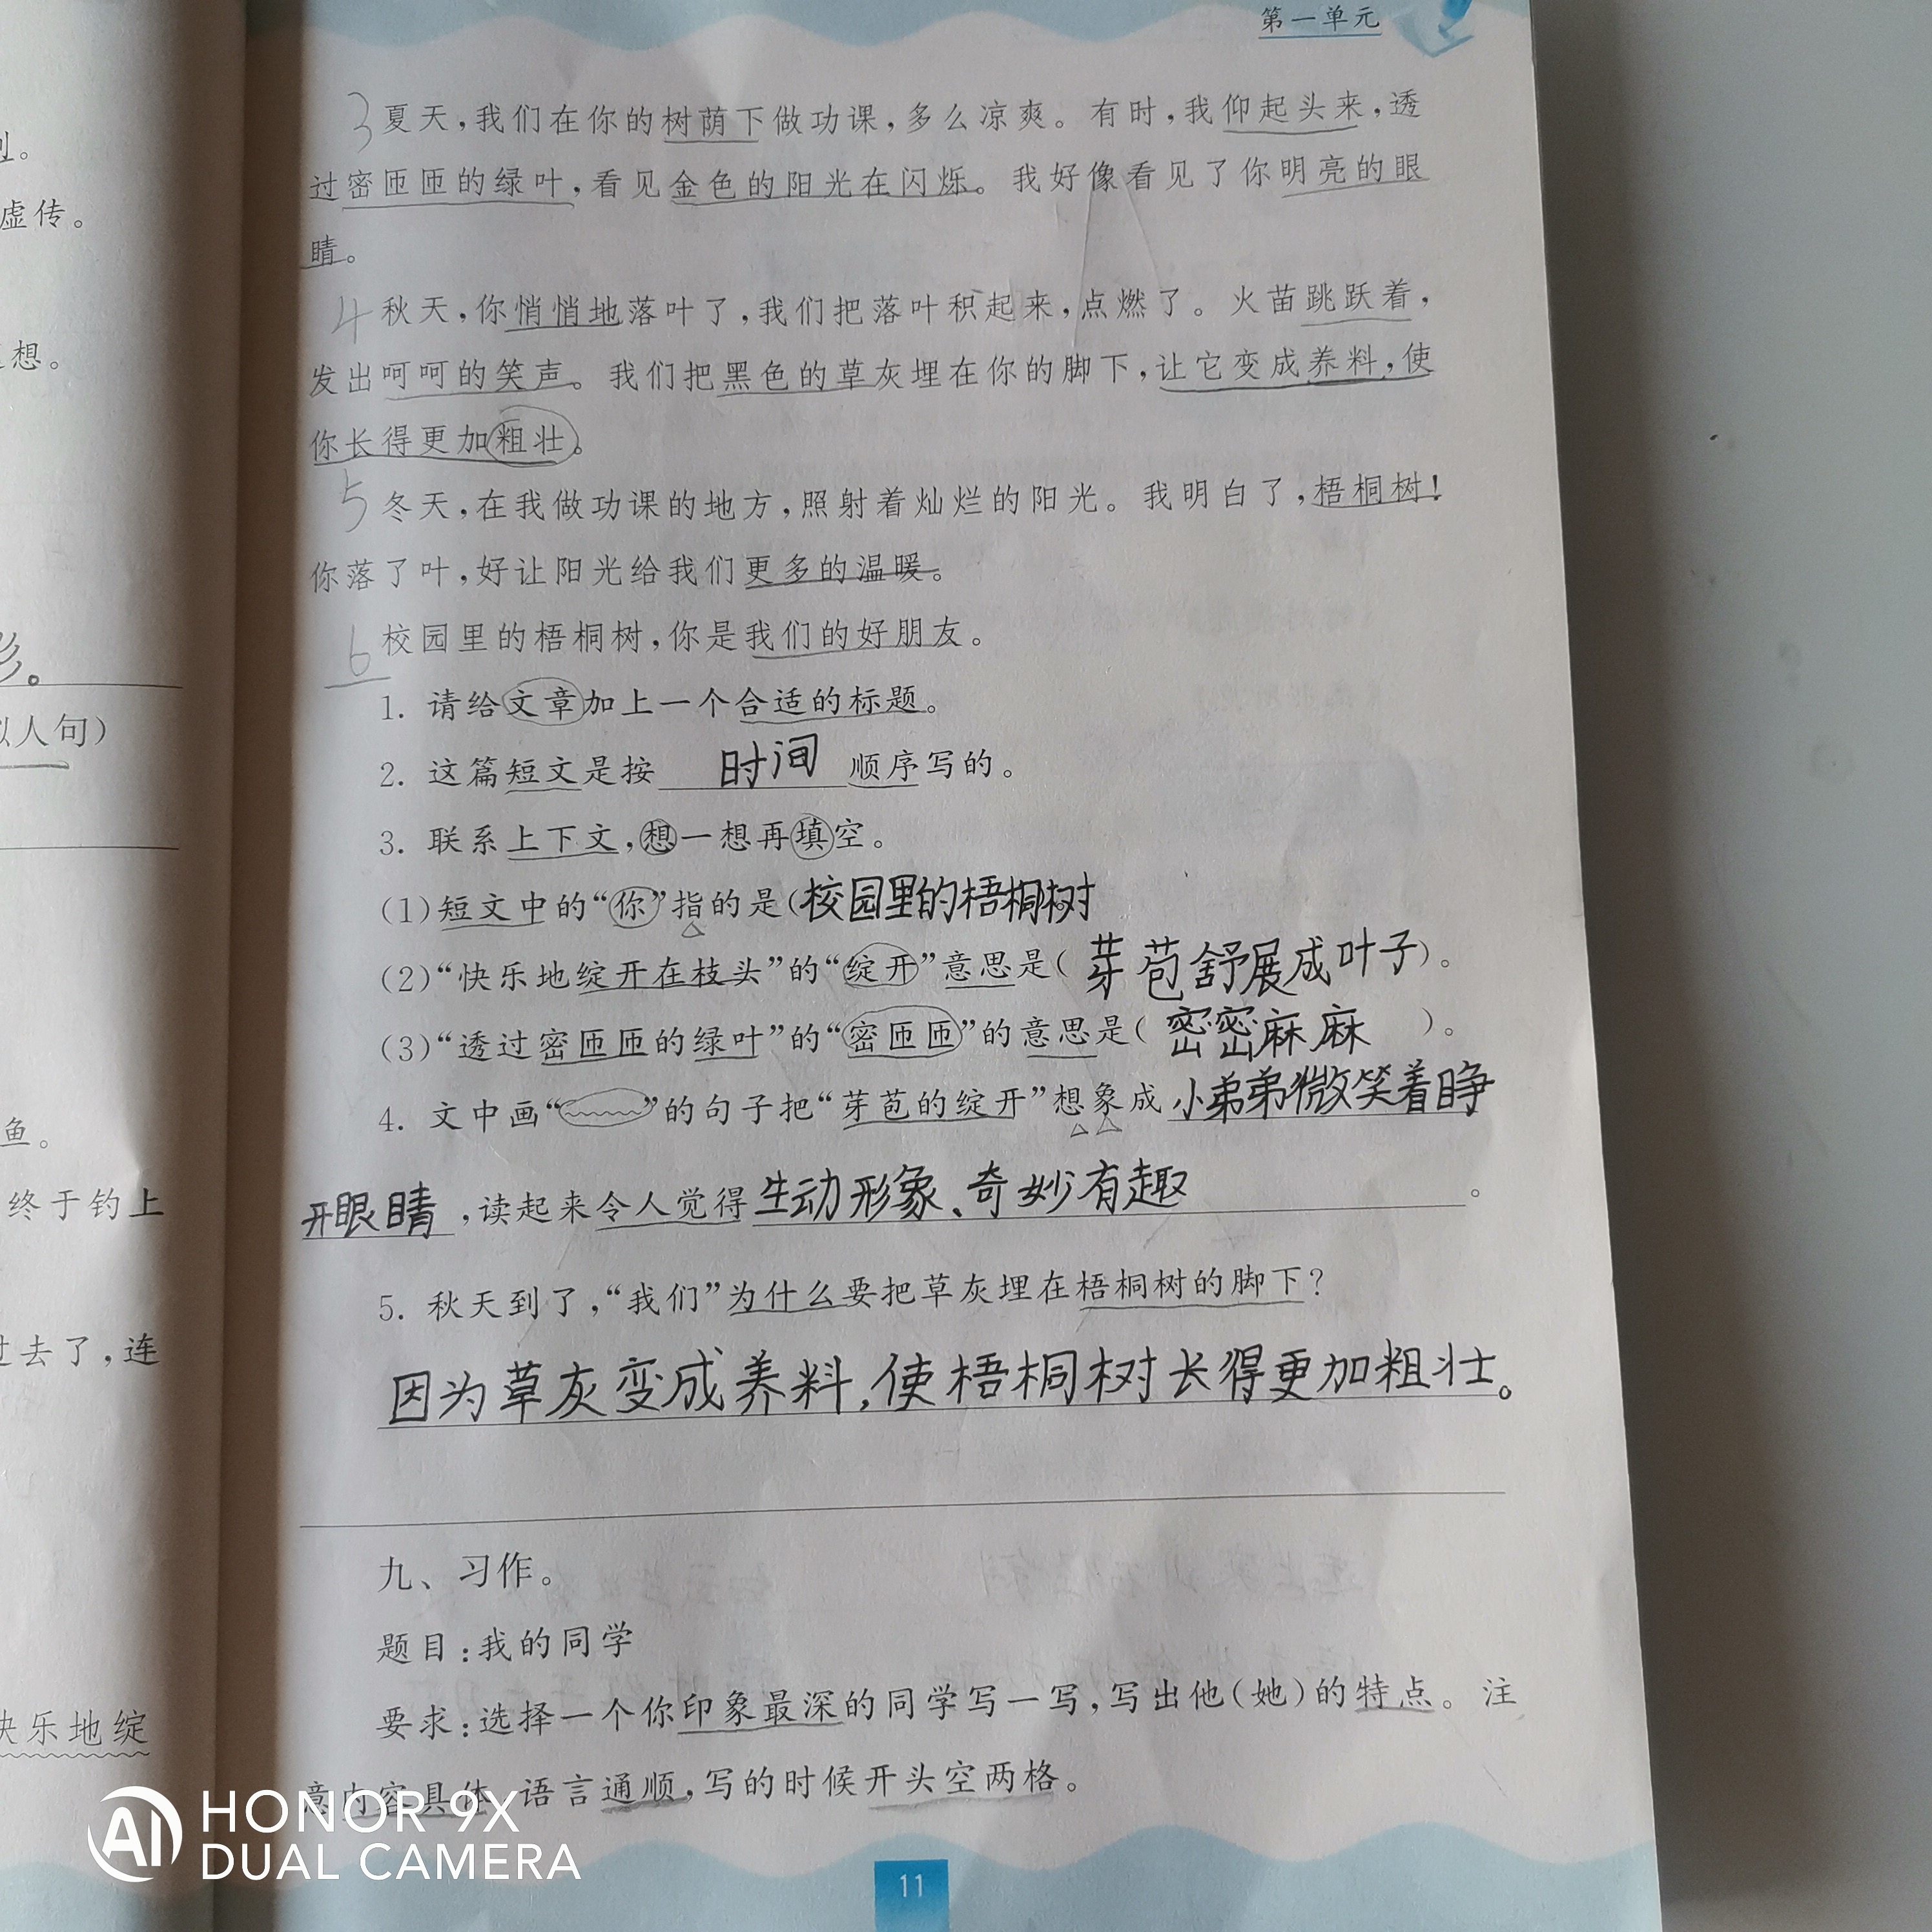 第一单元
3 夏天,我们在你的树荫下做功课,多么凉爽。有时,我仰起头来,透
过密匝匝的绿叶,看见金色的阳光在闪烁。我好像看见了你明亮的眼
睛。
4 秋天,你悄悄地落叶了,我们把落叶积起来,点燃了。火苗跳跃着,
发出呵呵的笑声。我们把黑色的草灰埋在你的脚下,让它变成养料,使
你长得更加粗壮。
5 冬天,在我做功课的地方,照射着灿烂的阳光。我明白了,梧桐树!
你落了叶,好让阳光给我们更多的温暖。
6 校园里的梧桐树,你是我们的好朋友。
1. 请给文章加上一个合适的标题。
2. 这篇短文是按 时间 顺序写的。
3. 联系上下文,想一想再填空。
(1)短文中的“你”指的是(校园里的梧桐树
(2)“快乐地绽开在枝头”的“绽开”意思是(芽苞舒展成叶子)。
(3)“透过密匝匝的绿叶”的“密匝匝”的意思是(密密麻麻)。
4. 文中画“﹏﹏”的句子把“芽苞的绽开”想象成 小弟弟微笑着睁
开眼睛,读起来令人觉得 生动形象、奇妙有趣。
5. 秋天到了,“我们”为什么要把草灰埋在梧桐树的脚下?
因为草灰变成养料,使梧桐树长得更加粗壮。
九、习作。
题目:我的同学
要求:选择一个你印象最深的同学写一写,写出他(她)的特点。注
意内容具体 语言通顺,写的时候开头空两格。
11
虚传。
想。
彡。
拟人句)
鱼。
终于钓上
过去了,连
快乐地绽
AI HONOR 9X
DUAL CAMERA